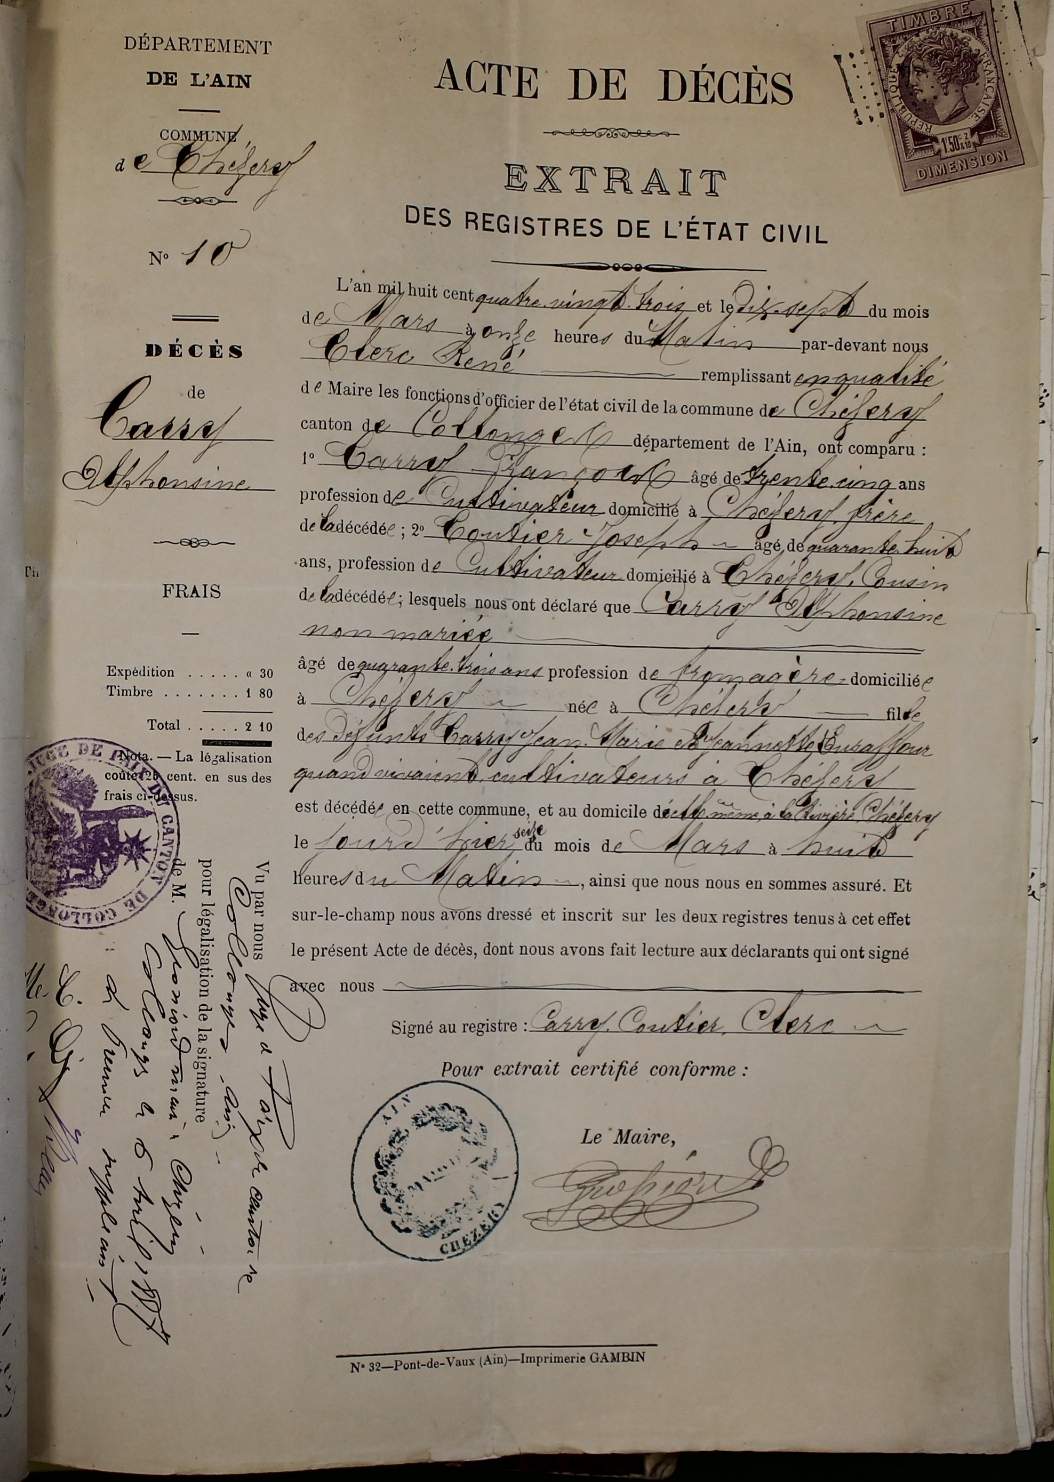 DÉPARTEMENT
DE L'AIN
COMMUNE
de Chézery
N° 10
DÉCÈS
de
Carry
Alphonsine
FRAIS
Expédition . . . . . « 30
Timbre . . . . . . . 1 80
Total . . . . . 2 10
Nota. — La légalisation
coûte 25 cent. en sus des
frais ci-dessus.
JUGE DE PAIX DU CANTON DE COLLONGES
TIMBRE
RÉPUBLIQUE FRANÇAISE
1F50c 2/10
DIMENSION
ACTE DE DÉCÈS
EXTRAIT
DES REGISTRES DE L'ÉTAT CIVIL
L'an mil huit cent quatre-vingt-trois et le dix-sept du mois
de Mars à onze heures du Matin par-devant nous
Clerc René remplissant en qualité
de Maire les fonctions d'officier de l'état civil de la commune de Chézery
canton de Collonges département de l'Ain, ont comparu :
1° Carry François âgé de trente-cinq ans
profession de Cultivateur domicilié à Chézery, frère
de la décédée ; 2° Coutier Joseph âgé de quarante-huit
ans, profession de Cultivateur domicilié à Chézery, Cousin
de la décédée ; lesquels nous ont déclaré que Carry Alphonsine
non mariée
âgé de quarante-trois ans profession de fromagère domiciliée
à Chézery née à Chézery fille
des défunts Carry Jean-Marie et Jeannette Duraffour
quand vivaient cultivateurs à Chézery
est décédée en cette commune, et au domicile d'elle-même à la Rivière Chézery
le jour d'hier seize du mois de Mars à huit
heures du Matin, ainsi que nous nous en sommes assuré. Et
sur-le-champ nous avons dressé et inscrit sur les deux registres tenus à cet effet
le présent Acte de décès, dont nous avons fait lecture aux déclarants qui ont signé
avec nous
Signé au registre : Carry, Coutier, Clerc
Pour extrait certifié conforme :
Le Maire,
AIN
MAIRIE
CHEZERY
Vu par nous Juge de Paix du canton de
Collonges (Ain)
pour légalisation de la signature
de M. maire à Chézery
Collonges le 6 avril 1887
Le Premier suppléant
N° 32—Pont-de-Vaux (Ain)—Imprimerie GAMBIN